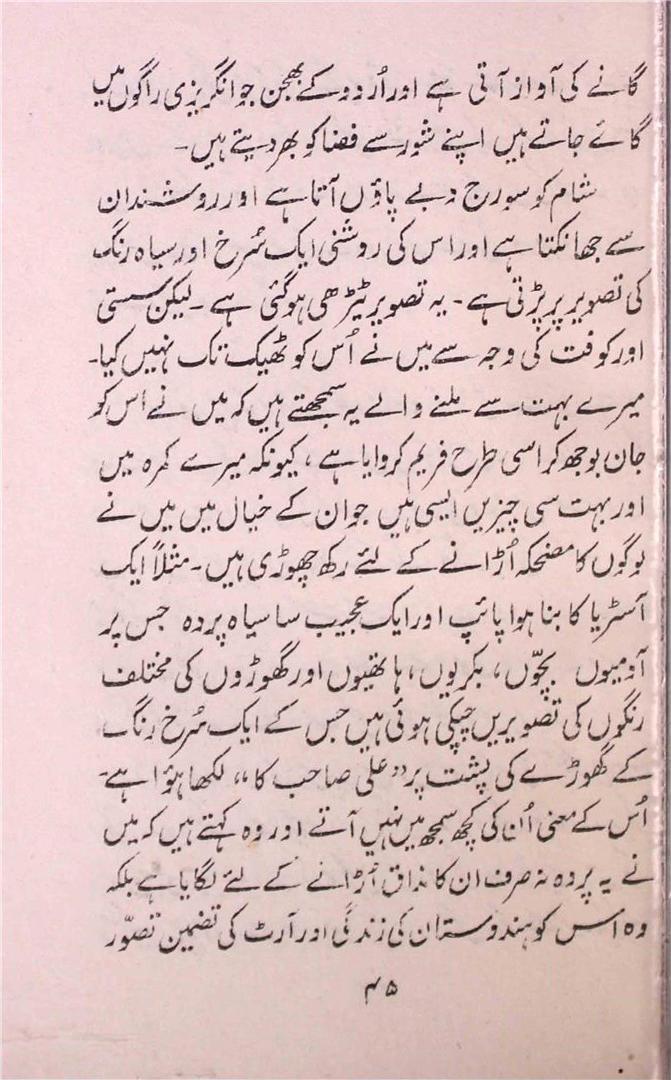 گانے کی آواز آتی ہے اور اُردو کے بھجن جو انگریزی راگوں میں
گائے جاتے ہیں اپنے شور سے فضا کو بھر دیتے ہیں۔
شام کو سورج دبے پاؤں آتا ہے اور روشندان
سے جھانکتا ہے اور اس کی روشنی ایک سُرخ اور سیاہ رنگ
کی تصویر پر پڑتی ہے۔ یہ تصویر ٹیڑھی ہو گئی ہے۔ لیکن سستی
اور کوفت کی وجہ سے میں نے اُس کو ٹھیک تک نہیں کیا۔
میرے بہت سے ملنے والے یہ سمجھتے ہیں کہ میں نے اس کو
جان بوجھ کر اسی طرح فریم کروایا ہے، کیونکہ میرے کمرہ میں
اور بہت سی چیزیں ایسی ہیں جو ان کے خیال میں میں نے
لوگوں کا مضحکہ اُڑانے کے لئے رکھ چھوڑی ہیں۔ مثلاً ایک
آسٹریا کا بنا ہوا پائپ اور ایک عجیب سا سیاہ پردہ جس پر
آدمیوں بچّوں، بکریوں، ہاتھیوں اور گھوڑوں کی مختلف
رنگوں کی تصویریں چپکی ہوئی ہیں جس کے ایک سُرخ رنگ
کے گھوڑے کی پشت پر ”علی صاحب کا“ لکھا ہؤا ہے۔
اُس کے معنی اُن کی کچھ سمجھ میں نہیں آتے اور وہ کہتے ہیں کہ میں
نے یہ پردہ نہ صرف ان کا مذاق اُڑانے کے لئے لگایا ہے بلکہ
وہ اس کو ہندوستان کی زندگی اور آرٹ کی تضمین تصوّر
۴۵